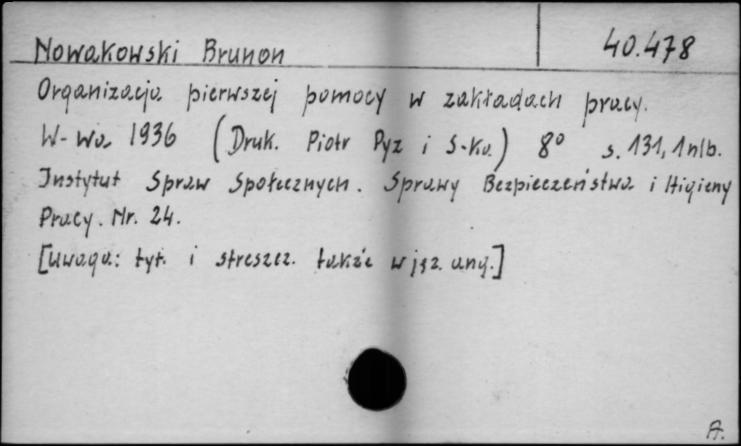 Nowakowski Brunon 40.478
Organizacja pierwszej pomocy w zakładach pracy.
W-wa 1936 (Druk. Piotr Pyz i S-ka) 8° s. 131, 1 nlb.
Instytut Spraw Społecznych. Sprawy Bezpieczeństwa i Higieny
Pracy. Nr. 24.
[uwaga: tyt. i streszcz. także w jęz. ang.]
A.